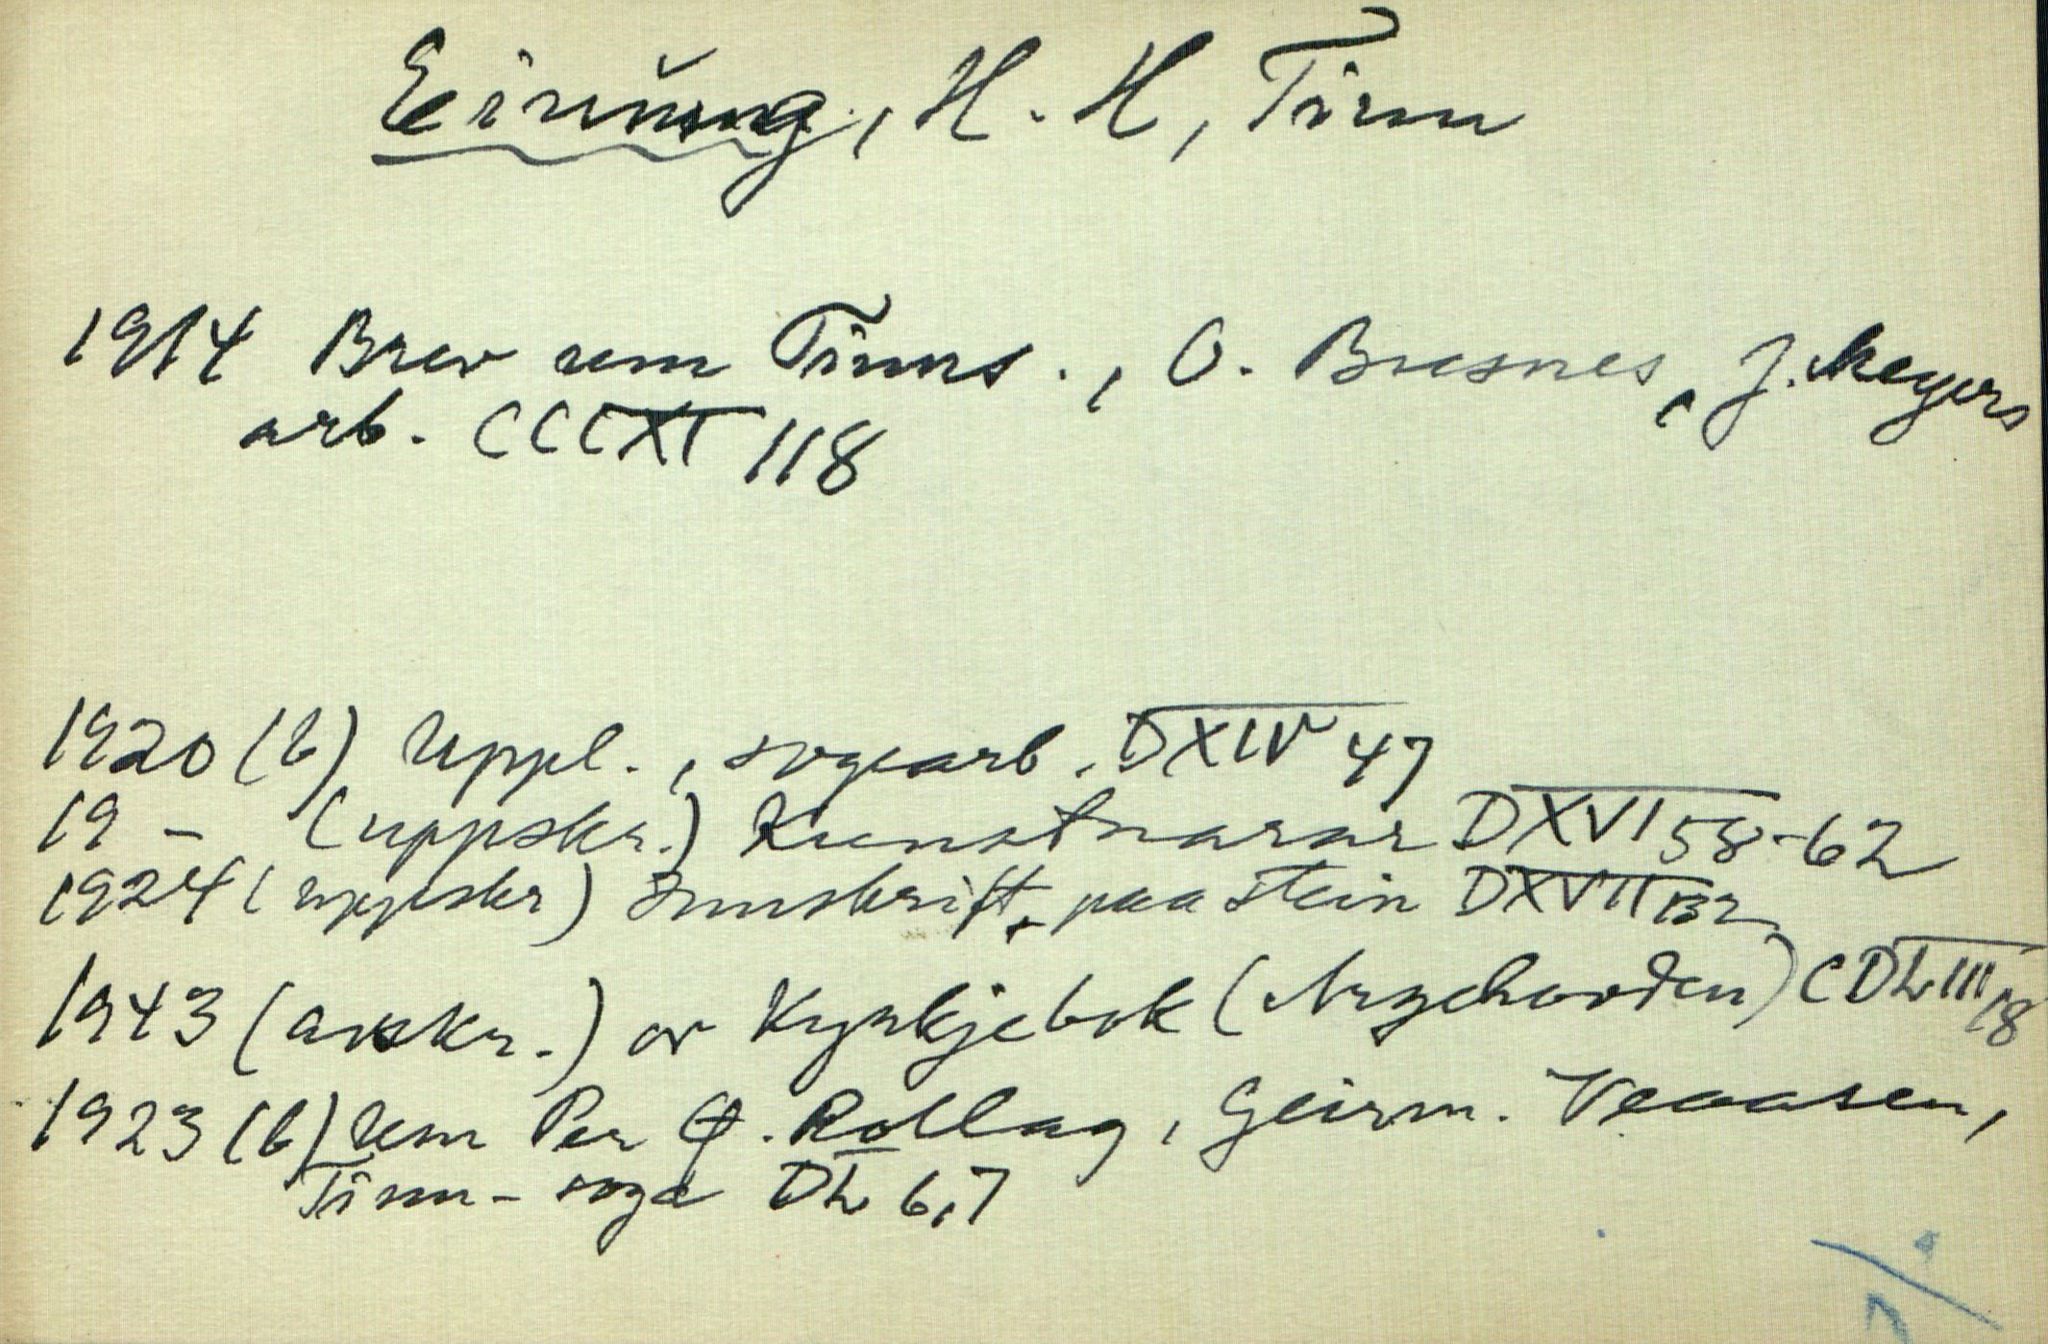 Einŭng, H. H, Tinn
1914 Brev um Tinns., O. Busnes, J. Meyers
arb. CCCXI 118
1920 (b) Uppl., sogearb. DXIV 47
19 - (uppskr.) Kunstnarar DXVI 58-62
1924 (uppskr) Innskrift. paa stein DXVII 132
1943 (avskr.) or Kyrkjebok ( ) CDL III 18
1923 (b) um Per Q. Rollag, Geirm. Veaasen,
Tinn-soga DL 6,7